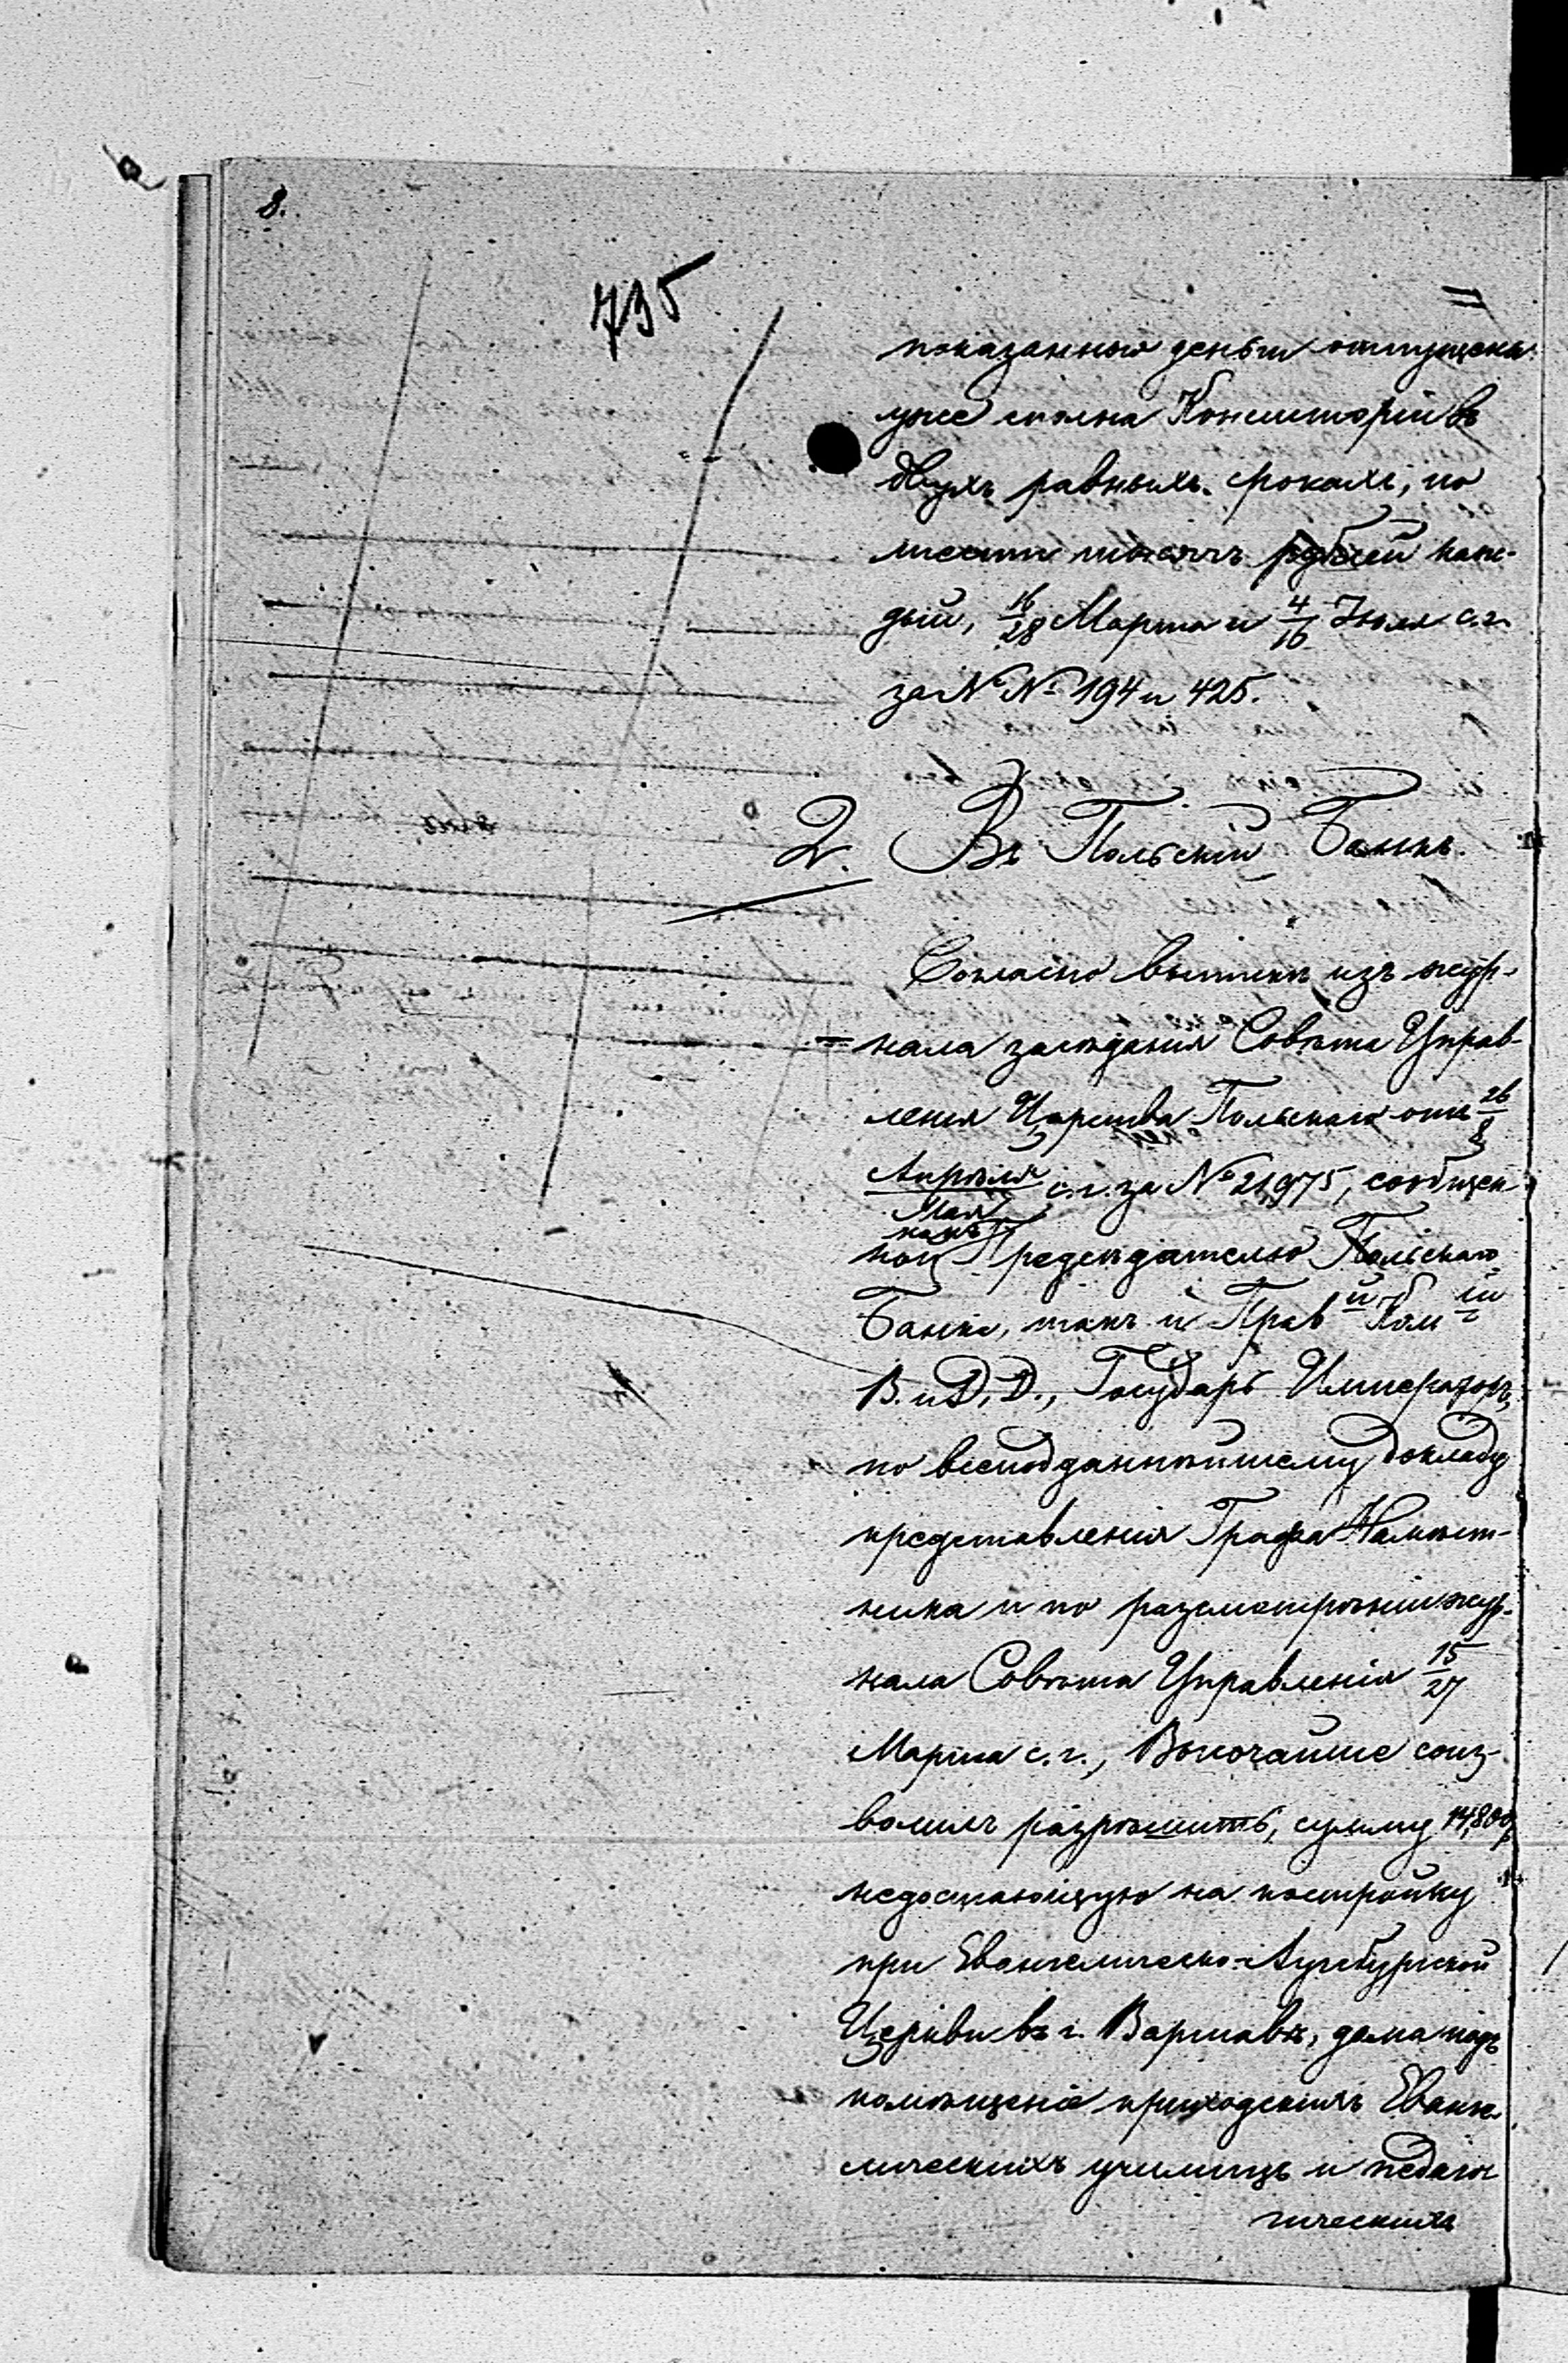 8.
735
показанныя деньги отпущены
уже сполна Консисторіи въ
двухъ равныхъ срокахъ, по
шести тысячъ рублей каж-
дый, 16/28 Марта и 4/16 Іюля с.г.
за №№ 194 и 425.
2. Въ Польскій Банкъ.
Согласно выписки изъ жур-
нала засѣданія Совѣта Управ-
ленія Царства Польскаго отъ 26/8
Апрѣля/Мая с.г. за № 21,975, сообщен-
ной какъ Предсѣдателю Польскаго
Банка, такъ и Прав й Ком іи
В. и Д. Д., Государь Императоръ,
по всеподданнѣйшему докладу
представленія Графа Намѣст-
ника и по разсмотрѣніи жур-
нала Совѣта Управленія 15/27
Марта с.г., Высочайше соиз-
волилъ разрѣшить, сумму 14,800 р.
недостающую на постройку
при Евангелическо-Аугсбургской
Церкви въ г. Варшавѣ, дома подъ
помѣщеніе приходскихъ Еванге-
лическихъ училищъ и педаго-
гическихъ